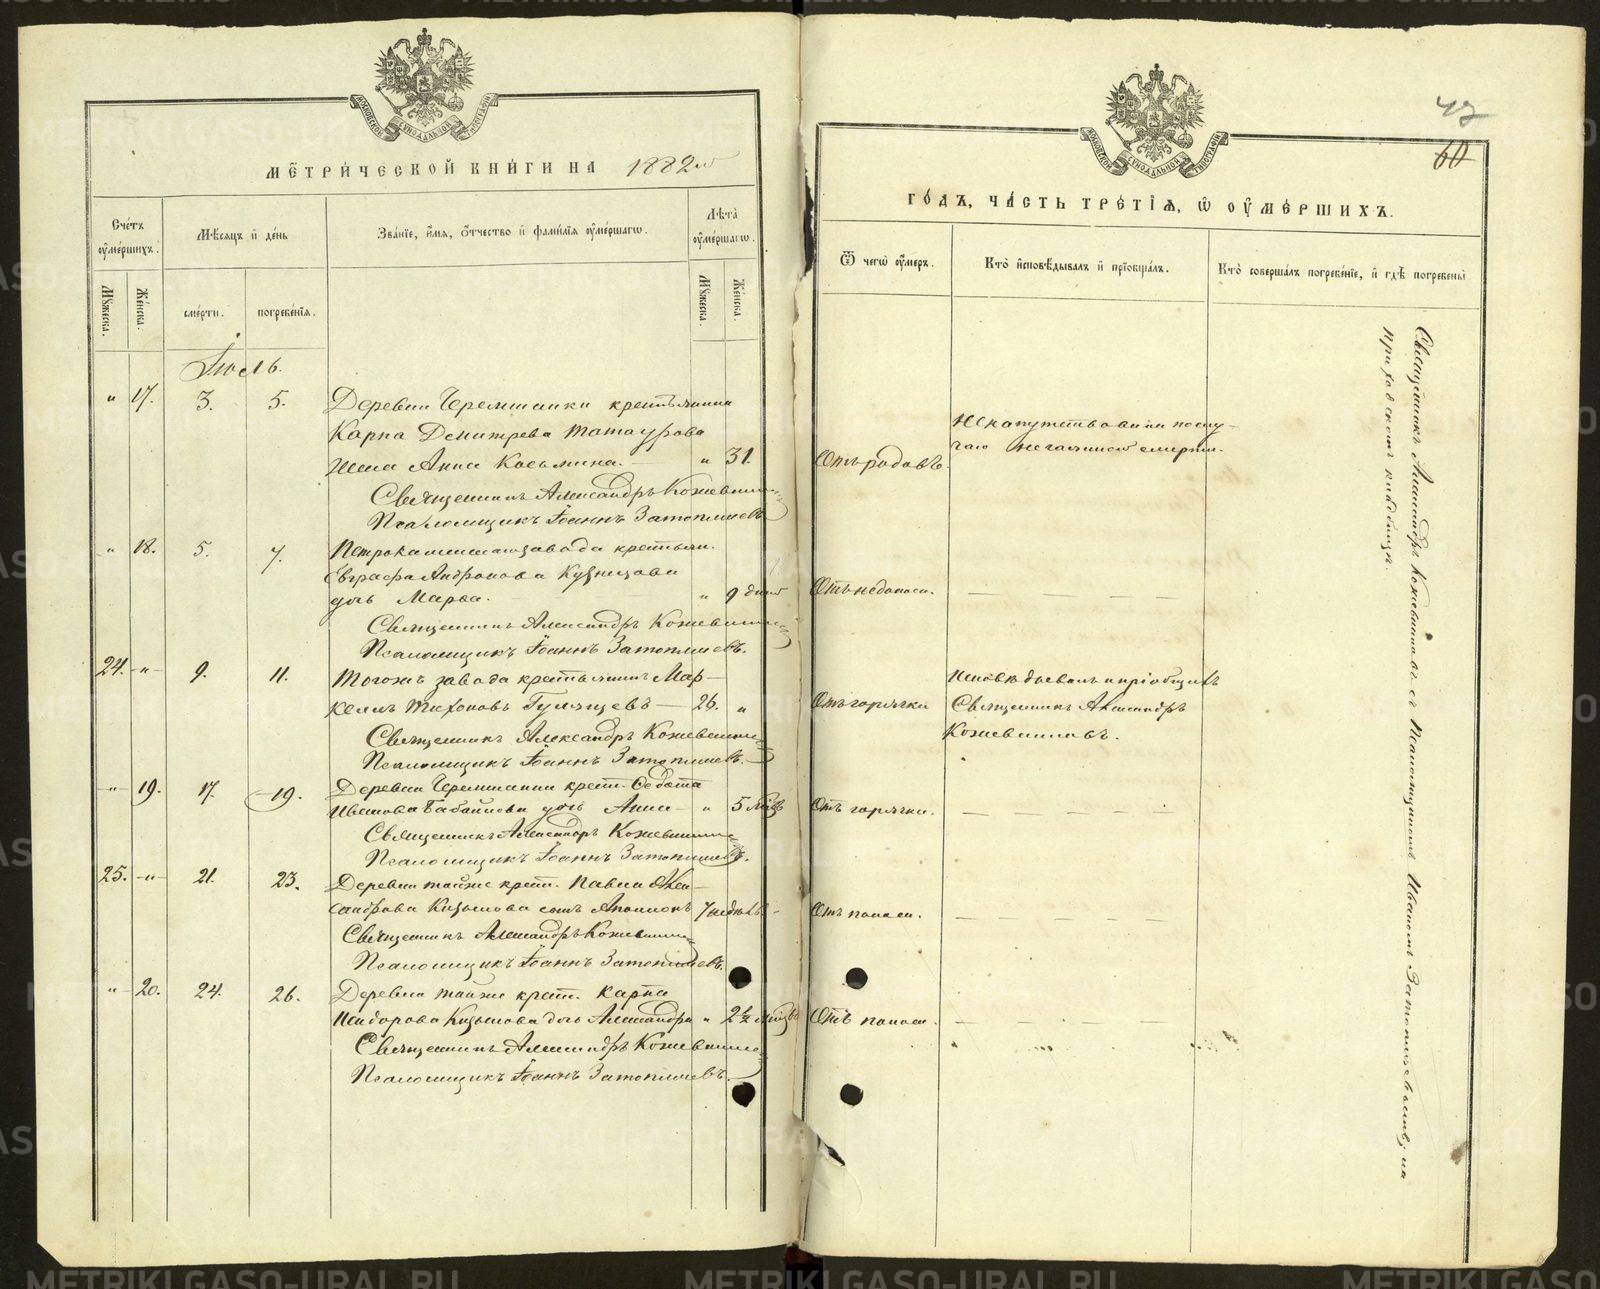 МОСКОВСКОЙ СѴНОДАЛЬНОЙ ТИПОГРАФІИ
МЕТРИЧЕСКОЙ КНИГИ НА 1882й
Счетъ оумершихъ.
Мѣсяцъ и день
Званіе, имя, отчество и фамилія оумершаго.
Лѣта оумершаго.
Мужеска.
Женска.
смерти.
погребенія.
Мужеска.
Женска.
Іюль.
" 17. 3. 5. Деревни Черемшанки крестьянина
Карпа Димитрева Татаурова
жена Анна Косьмина. — " 31.
Священникъ Александръ Кожевниковъ
Псаломщикъ Іоаннъ Затопляевъ
" 18. 5. 7. Петрокаменскаго завода крестьян.
Евграфа Андронова Кузнецова
дочь Марѳа. " 9 дней
Священникъ Александръ Кожевниковъ
Псаломщикъ Іоаннъ Затопляевъ.
24. " 9. 11. Тогожъ завода крестьянинъ Мар-
келъ Тихоновъ Гулящевъ — 26. "
Священникъ Александръ Кожевниковъ
Псаломщикъ Іоаннъ Затопляевъ.
" 19. 17. 19. Деревни Черемшанки крест. Ѳедота
Иванова дочь Анна — " 5 мѣс
Священникъ Александръ Кожевниковъ
Псаломщикъ Іоаннъ Затопляевъ.
25. " 21. 23. Деревни тойже крест. Павла Алек-
сандрова сынъ 7 недѣль
Священникъ Александръ Кожевниковъ
Псаломщикъ Іоаннъ Затопляевъ.
" 20. 24. 26. Деревни тойже крест. Карпа
Исидорова дочь Александра " 2½ мѣсяца
Священникъ Александръ Кожевниковъ
Псаломщикъ Іоаннъ Затопляевъ.
МОСКОВСКОЙ СѴНОДАЛЬНОЙ ТИПОГРАФІИ
47
60
ГОДЪ, ЧАСТЬ ТРЕТІЯ, Ѡ ОУМЕРШИХЪ.
Ѿ чегѡ оумеръ.
Кто исповѣдывалъ и пріобщалъ.
Кто совершалъ погребеніе, и гдѣ погребены
Не напутствована по слу-
чаю нечаянной смерти.
Отъ родовъ.
Отъ недоноси.
Исповѣдывалъ и пріобщилъ
Отъ горячки Священникъ Александръ
Кожевниковъ.
Отъ горячки.
Отъ поноса.
Отъ поноса.
Священникъ Александръ Кожевниковъ съ Псаломщикомъ Иваномъ Затопляевымъ; на
приходскомъ кладбищѣ.
METRIKI.GASO-URAL.RU